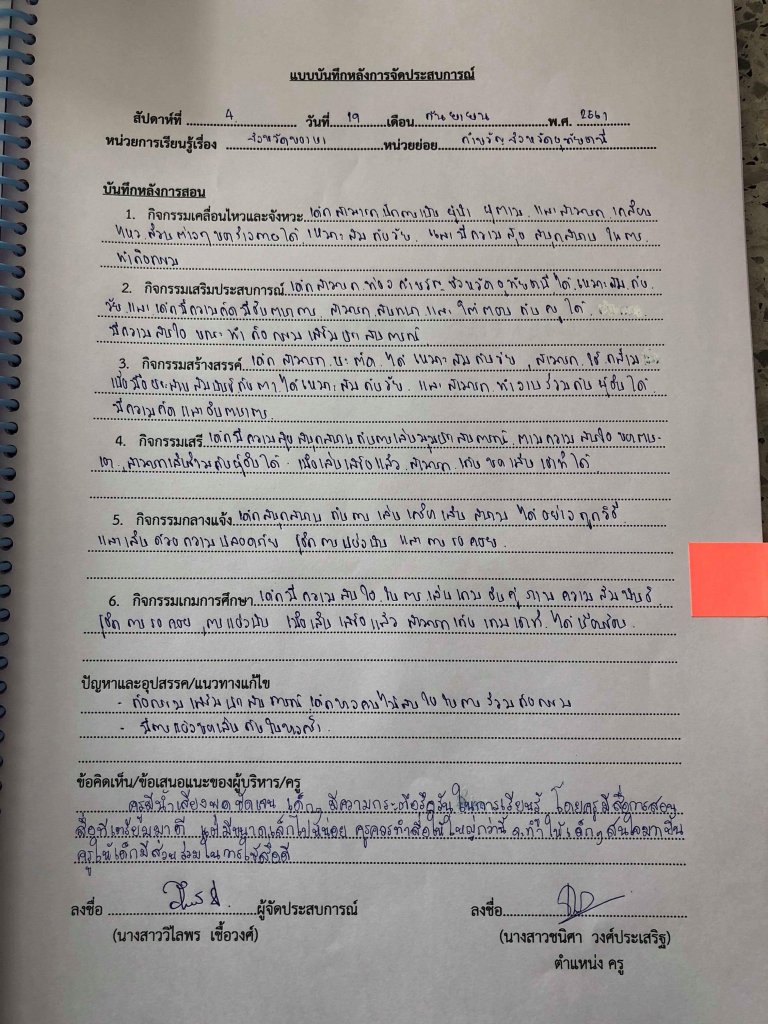 แบบบันทึกหลังการจัดประสบการณ์
สัปดาห์ที่ 4 วันที่ 19 เดือน กันยายน พ.ศ. 2561
หน่วยการเรียนรู้เรื่อง จังหวัดของเรา หน่วยย่อย คำขวัญจังหวัดอุทัยธานี
บันทึกหลังการสอน
1. กิจกรรมเคลื่อนไหวและจังหวะ เด็กสามารถฝึกการเป็น ผู้นำ ผู้ตาม และสามารถ เคลื่อน
ไหว ส่วนต่างๆ ของร่างกายได้ เหมาะสมกับวัย และมีความสุข สนุกสนาน ในการ
ทำกิจกรรม
2. กิจกรรมเสริมประสบการณ์ เด็กสามารถ ท่อง คำขวัญ จังหวัดอุทัยธานี ได้เหมาะสมกับ
วัย และ เด็กมีความคิดมีจินตนาการ สามารถ สนทนา และ โต้ตอบ กับครู ได้
มีความสนใจ ขณะทำ กิจกรรมเสริมประสบการณ์
3. กิจกรรมสร้างสรรค์ เด็กสามารถ ฉะตัด ได้ เหมาะสมกับวัย สามารถใช้กล้าม
เนื้อมือประสานสัมพันธ์กับตาได้เหมาะสมกับวัย และสามารถทำงานร่วมกับผู้อื่นได้
มีความคิดและจินตนาการ
4. กิจกรรมเสรี เด็กมีความสุขสนุกสนานกับการเล่นมุมประสบการณ์ ตามความสนใจ ของตน
เอง สามารถเล่นร่วมกับผู้อื่นได้ เมื่อเล่นเสร็จแล้ว สามารถเก็บของเล่นเข้าที่ได้
5. กิจกรรมกลางแจ้ง เด็กสนุกสนาน กับการเล่นเครื่องเล่นสนามได้อย่างถูกวิธี
และเล่นด้วยความปลอดภัย รู้จักการแบ่งปัน และการรอคอย
6. กิจกรรมเกมการศึกษา เด็กมีความสนใจในการเล่นเกมจับคู่ภาพความสัมพันธ์
รู้จักการรอคอย การแบ่งปัน เมื่อเล่นเสร็จแล้ว สามารถเก็บเกมเข้าที่ได้เรียบร้อย
ปัญหาและอุปสรรค/แนวทางแก้ไข
- กิจกรรมเสริมประสบการณ์เด็กบางคนไม่สนใจในการร่วมกิจกรรม
- มีการแย่งของเล่นกันในบางครั้ง
ข้อคิดเห็น/ข้อเสนอแนะของผู้บริหาร/ครู
ครูมีน้ำเสียงพูดชัดเจน เด็กๆ มีความกระตือรือร้นในการเรียนรู้ โดยครูมีสื่อการสอน
สื่อที่เตรียมมาดี แต่มีขนาดเล็กไปนิดหน่อย ครูควรทำสื่อให้ใหญ่กว่านี้ จะทำให้เด็กๆ สนใจมากขึ้น
ครูให้เด็กมีส่วนร่วมในการใช้สื่อดี
ลงชื่อ ผู้จัดประสบการณ์ ลงชื่อ
(นางสาววิไลพร เชื้อวงศ์) (นางสาวชนิศา วงศ์ประเสริฐ)
ตำแหน่ง ครู